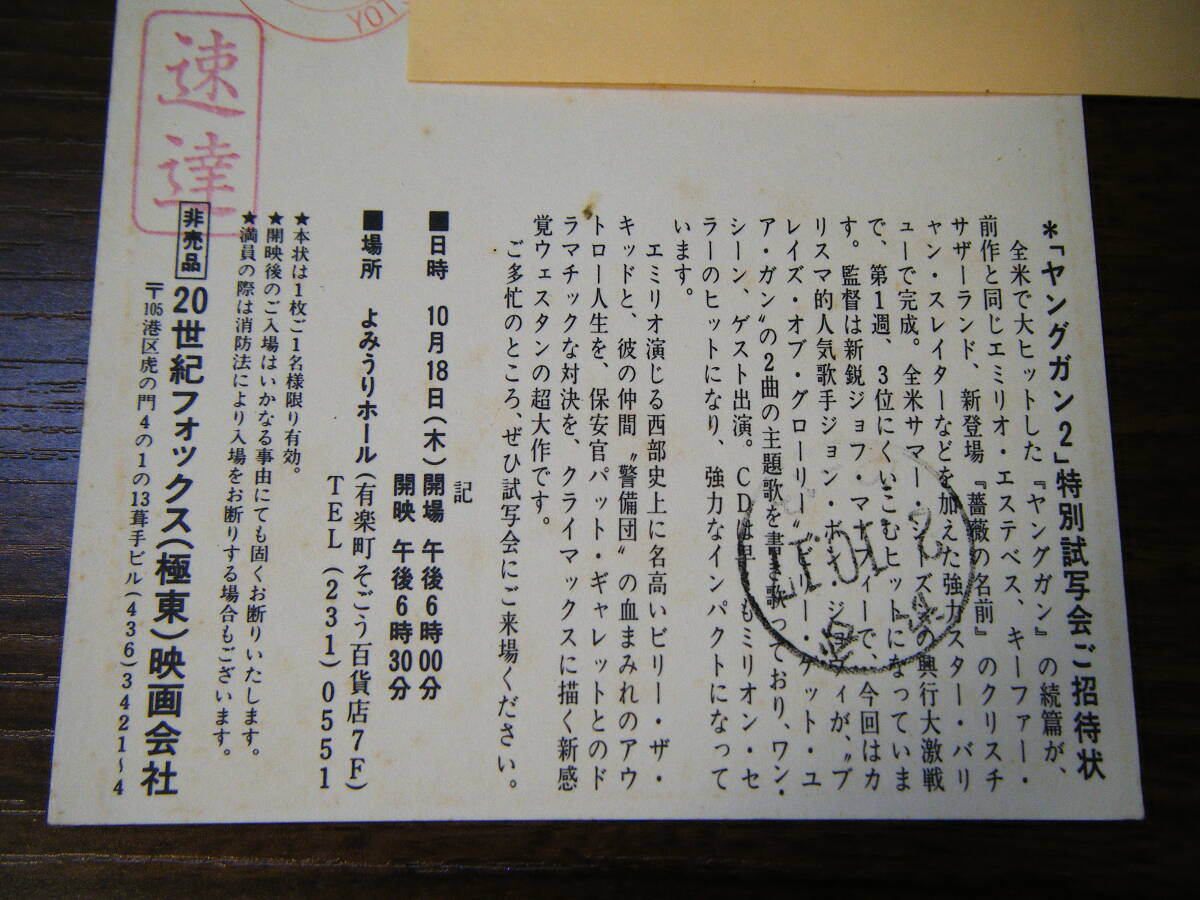 ＊「ヤングガン２」特別試写会ご招待状
全米で大ヒットした『ヤングガン』の続篇が、
前作と同じエミリオ・エステベス、キーファー・
サザーランド、新登場『薔薇の名前』のクリスチ
ャン・スレイターなどを加えた強力スター・バリ
ューで完成。全米サマー・シーズンの興行大激戦
で、第1週、3位にくいこむヒットになっていま
す。監督は新鋭ジョフ・マーフィーで、今回はカ
リスマ的人気歌手ジョン・ボン・ジョヴィが、〝ブ
レイズ・オブ・グローリー〟〝ビリー・ゲット・ユ
ア・ガン〟の2曲の主題歌を書き歌っており、ワン・
シーン、ゲスト出演。CDは早くもミリオン・セ
ラーのヒットになり、強力なインパクトになって
います。
エミリオ演じる西部史上に名高いビリー・ザ・
キッドと、彼の仲間〝警備団〟の血まみれのアウ
トロー人生を、保安官パット・ギャレットとのド
ラマチックな対決を、クライマックスに描く新感
覚ウェスタンの超大作です。
ご多忙のところ、ぜひ試写会にご来場ください。
記
■日時 10月18日(木) 開場 午後6時00分
開映 午後6時30分
■場所 よみうりホール(有楽町そごう百貨店7F)
TEL(231)0551
★本状は1枚ご1名様限り有効。
★開映後のご入場はいかなる事由にても固くお断りいたします。
★満員の際は消防法により入場をお断りする場合もございます。
非売品 20世紀フォックス(極東)映画会社
〒105港区虎の門4の1の13葺手ビル(436)3421〜4
速達
YOT